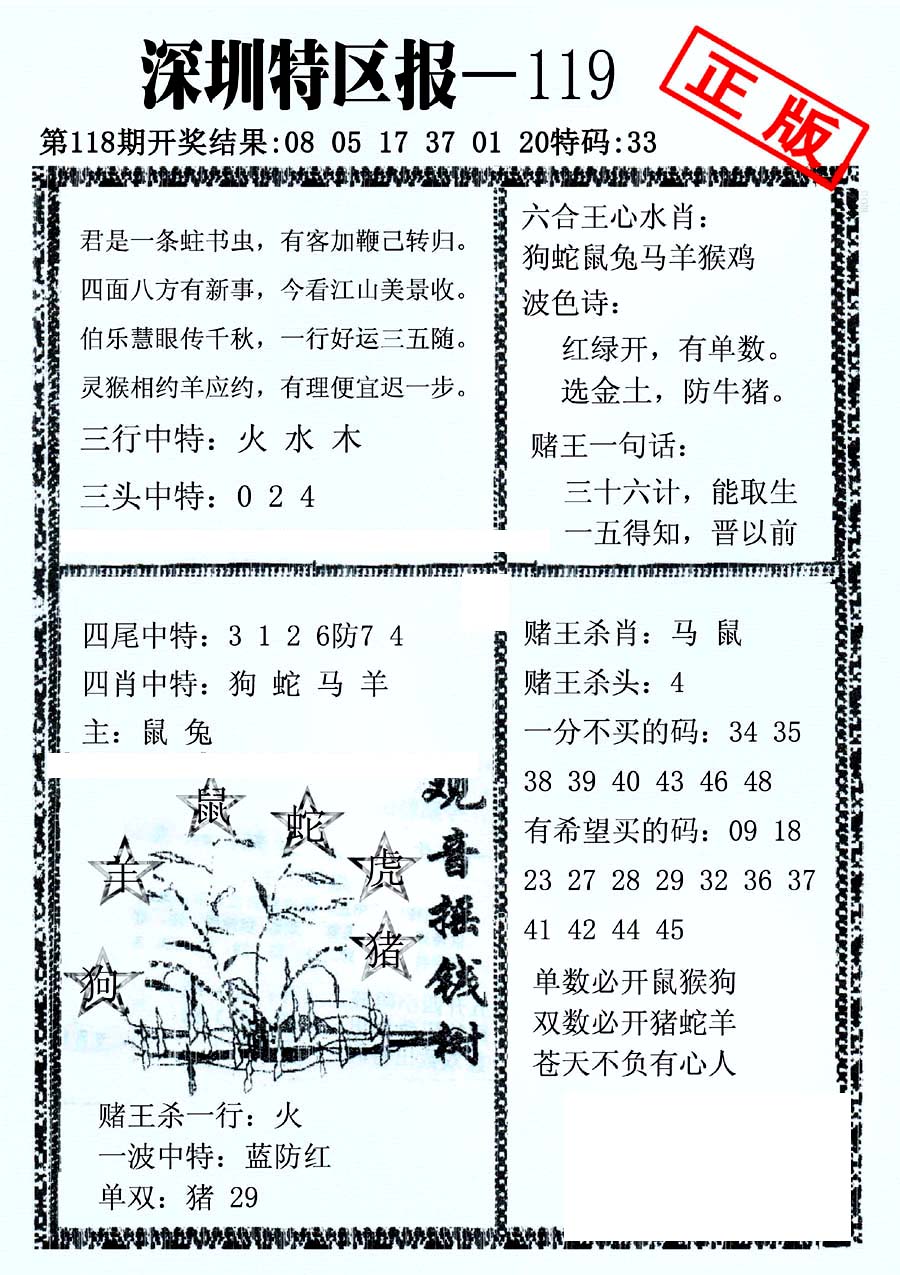 深圳特区报—119
正版
第118期开奖结果:08 05 17 37 01 20特码:33
君是一条蛀书虫，有客加鞭己转归。
四面八方有新事，今看江山美景收。
伯乐慧眼传千秋，一行好运三五随。
灵猴相约羊应约，有理便宜迟一步。
三行中特：火 水 木
三头中特：0 2 4
六合王心水肖：
狗蛇鼠兔马羊猴鸡
波色诗：
红绿开，有单数。
选金土，防牛猪。
赌王一句话：
三十六计，能取生
一五得知，晋以前
四尾中特：3 1 2 6防7 4
四肖中特：狗 蛇 马 羊
主：鼠 兔
鼠
蛇
羊
虎
猪
狗
观音摇钱树
赌王杀一行：火
一波中特：蓝防红
单双：猪 29
赌王杀肖：马 鼠
赌王杀头：4
一分不买的码：34 35
38 39 40 43 46 48
有希望买的码：09 18
23 27 28 29 32 36 37
41 42 44 45
单数必开鼠猴狗
双数必开猪蛇羊
苍天不负有心人